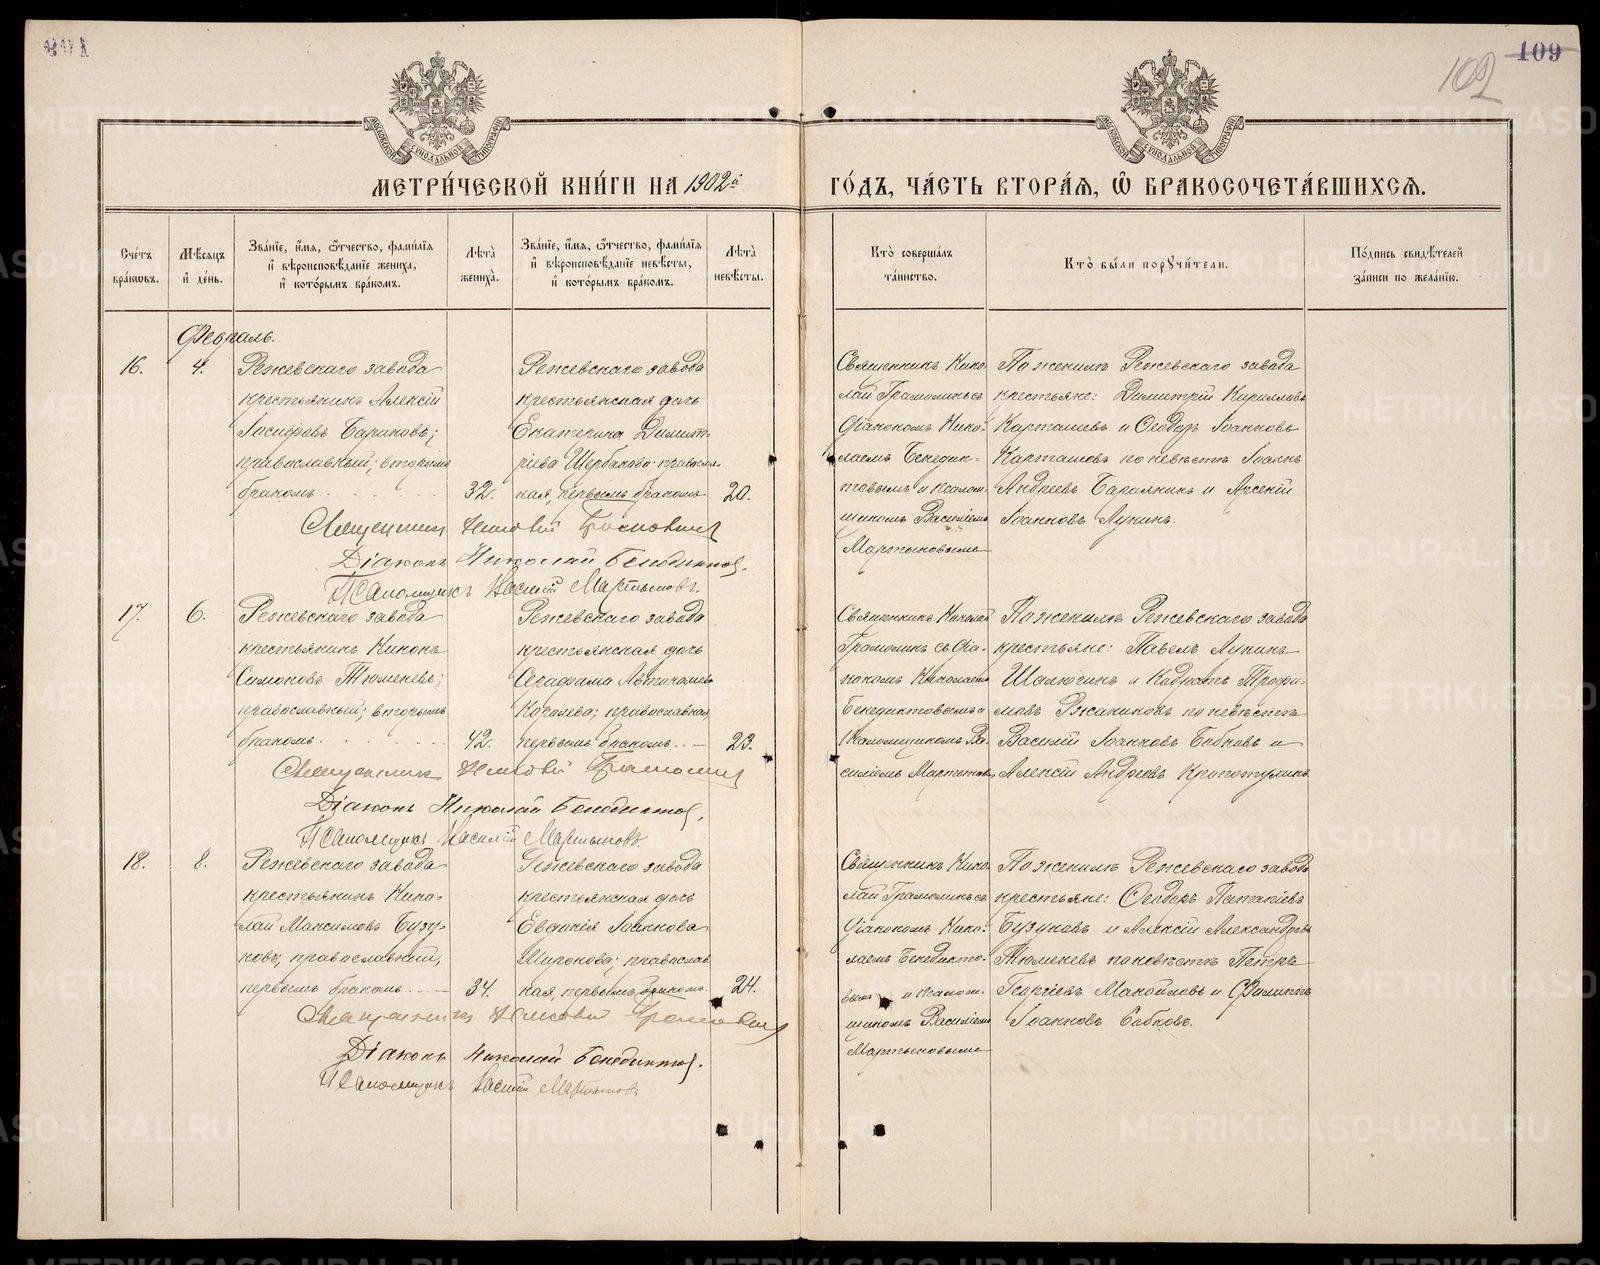 109
102
МОСКОВСКОЙ СѴНОДАЛЬНОЙ ТИПОГРАФІИ
МОСКОВСКОЙ СѴНОДАЛЬНОЙ ТИПОГРАФІИ
МЕТРИ́ЧЕСКОЙ КНИ́ГИ НА 1902й ГО́ДЪ, ЧА́СТЬ ВТОРА́Я, Ѽ БРАКОСОЧЕТА́ВШИХСЯ.
Сче́тъ бра́ковъ.
Мѣ́сяцъ и҆ де́нь.
Зва́нїе, и҆́мя, ѻ҆́тчество, фами́лїя и҆ вѣроисповѣ́данїе жениха̀, и҆ кото́рымъ бра́комъ.
Лѣ́та жениха̀.
Зва́нїе, и҆́мя, ѻ҆́тчество, фами́лїя и҆ вѣроисповѣ́данїе невѣ́сты, и҆ кото́рымъ бра́комъ.
Лѣ́та невѣ́сты.
Кто̀ соверша́лъ та́инство.
Кто̀ бы́ли порꙋчи́тели.
По́дпись свидѣ́телей за́писи по жела́нїю.
Февраль.
16.
4.
Режевскаго завода
крестьянинъ Алексій
Іосифовъ Барановъ;
православный; вторымъ
бракомъ
32.
Режевскаго завода
крестьянская дочь
Екатерина Димит-
ріева Щербакова; православ-
ная, первымъ бракомъ
20.
Священникъ Нико-
лай Грамолинъ съ
діакономъ Нико-
лаемъ Бенедик-
товымъ и псалом-
щикомъ Василіемъ
Мартыновымъ
По женихѣ Режевскаго завода
крестьяне: Димитрій Кирилловъ
Карташевъ и Ѳеодоръ Іоанновъ
Карташовъ по невѣстѣ Іоаннъ
Андреевъ и Арсеній
Іоанновъ Лукинъ.
Священникъ Николай Грамолинъ
Діаконъ Николай Бенедиктов.
Псаломщикъ Василій Мартыновъ.
17.
6.
Режевскаго завода
крестьянинъ Никонъ
Симоновъ Тюменевъ;
православный; вторымъ
бракомъ
42.
Режевскаго завода
крестьянская дочь
Серафима Автономова
Королева; православная,
первымъ бракомъ
23.
Священникъ Николай
Грамолинъ съ діа-
кономъ Николаемъ
Бенедиктовымъ и
псаломщикомъ Ва-
силіемъ Мартыновымъ
По женихѣ Режевскаго завода
крестьяне: Павелъ Лукинъ
Шалюгинъ и Кодратъ Трофи-
мовъ Ржанниковъ по невѣстѣ
Василій Іоанновъ Бобковъ и
Алексій Андреевъ Кропотухинъ
Священникъ Николай Грамолинъ
Діаконъ Николай Бенедиктов.
Псаломщикъ Василій Мартыновъ.
18.
8.
Режевскаго завода
крестьянинъ Нико-
лай Максимовъ Бузу-
новъ; православный,
первымъ бракомъ
34.
Режевскаго завода
крестьянская дочь
Евдокія Іоаннова
Миронова; православ
ная, первымъ бракомъ
24.
Священникъ Нико-
лай Грамолинъ съ
діакономъ Нико-
лаемъ Бенедикто-
вымъ и псалом-
щикомъ Василіемъ
Мартыновымъ
По женихѣ Режевскаго завода
крестьяне: Ѳеодоръ Потапіевъ
Бузуновъ и Алексій Александровъ
Тюменевъ по невѣстѣ Петръ
Георгіевъ Манойловъ и Филиппъ
Іоанновъ Бобковъ.
Священникъ Николай Грамолинъ
Діаконъ Николай Бенедиктов.
Псаломщикъ Василій Мартыновъ
METRIKI.GASO-URAL.RU